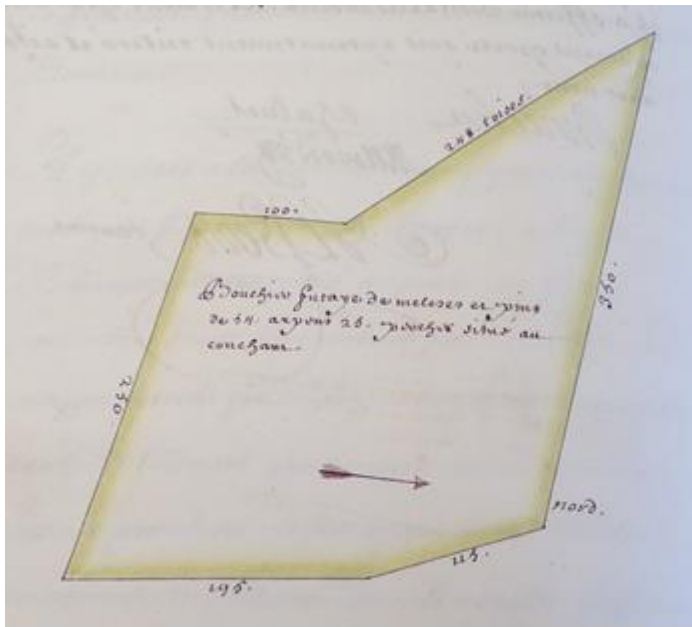 248. toises.
100.
350.
Bouchier futaye de melezes et pins
de 54. arpens 25. perches situé au
couchant.
230.
nord.
115.
195.